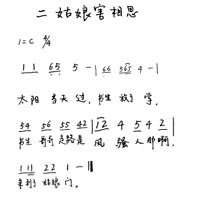 二 姑娘害相思
1=C 4/4
1 1 65 5 - | 66 565 4 - |
太阳 当天 过, 书生 放了 学,
54 56 55 42 | 12 4 5 4 2 |
书生 哥哥 走路是 风 强人那啊,
111 22 1 - ||
来到了 姑娘 门。